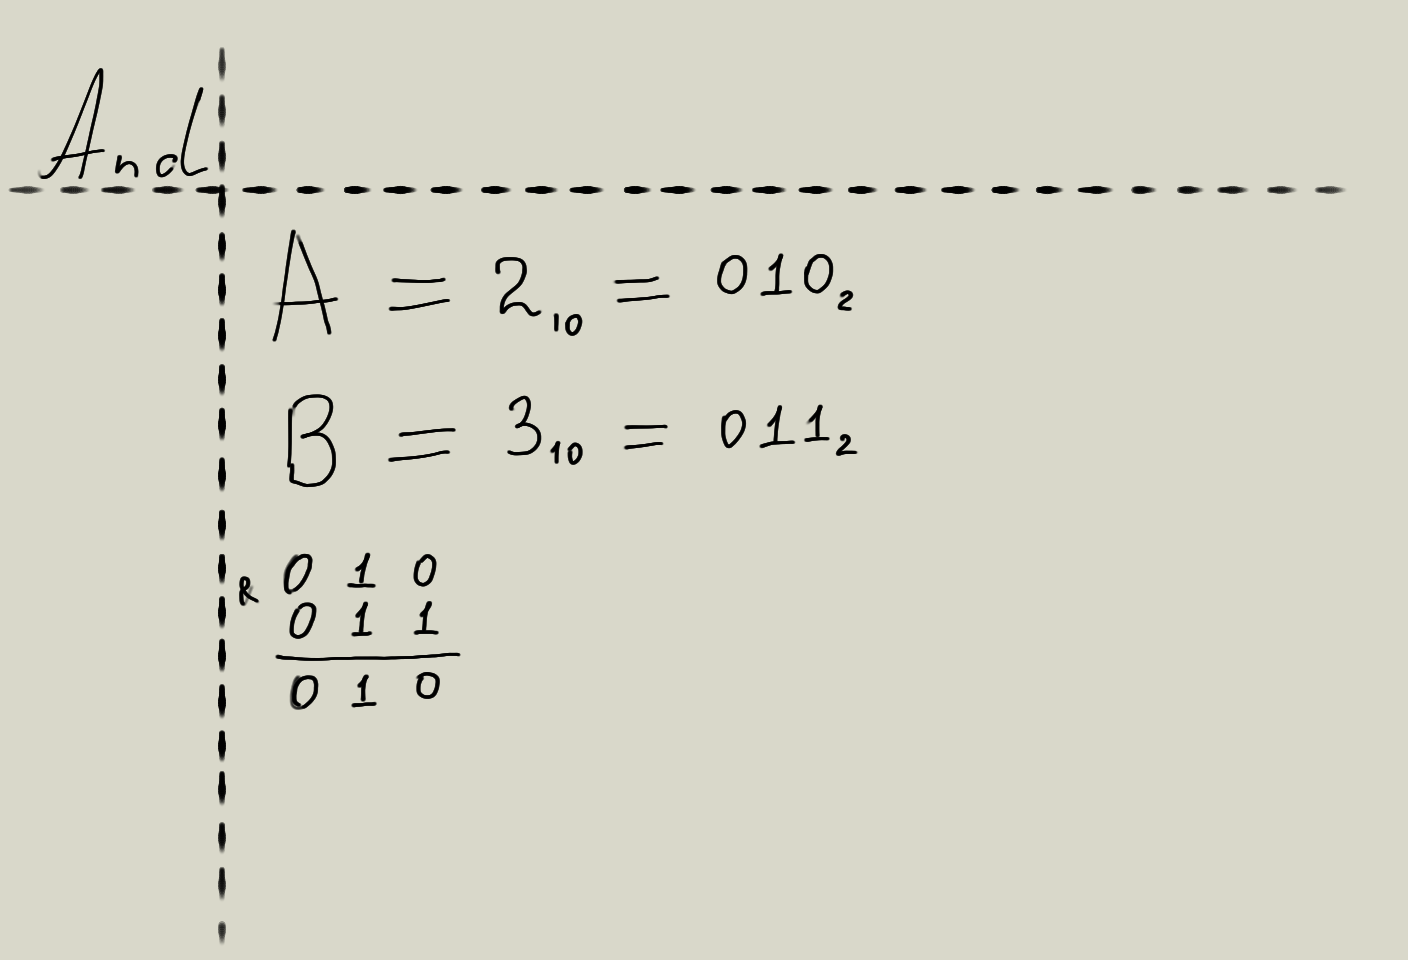 And
A = 2₁₀ = 010₂
B = 3₁₀ = 011₂
& 0 1 0
0 1 1
0 1 0